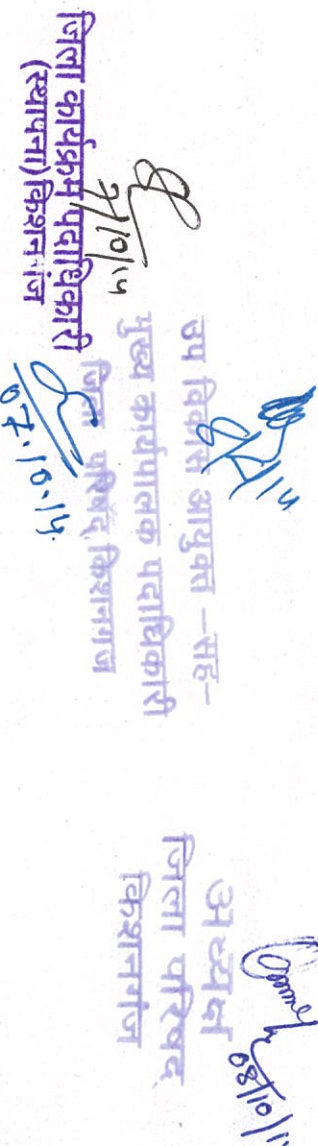 7/10/14
जिला कार्यक्रम पदाधिकारी
(स्थापना) किशनगंज
07.10.14.
उप विकास आयुक्त -सह-
मुख्य कार्यपालक पदाधिकारी
जिला परिषद् किशनगंज
08/10/1
अध्यक्ष
जिला परिषद्
किशनगंज